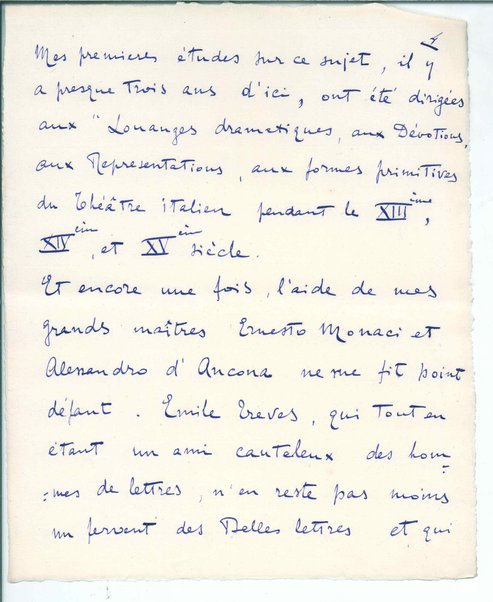 Mes premieres études sur ce sujet, il y
a presque trois ans d'ici, ont été dirigées
aux "Louanges dramatiques, aux Dévotions,
aux Representations, aux formes primitives
du théâtre italien pendant le XIII ème,
XIV em, et XV em siècle.
Et encore une fois, l'aide de mes
grands maîtres Ernesto Monaci et
Alessandro d'Ancona ne me fit point
défaut. Emile Treves, qui tout en
étant un ami cauteleux des hom=
=mes de lettres, n'en reste pas moins
un fervent des Belles lettres et qui